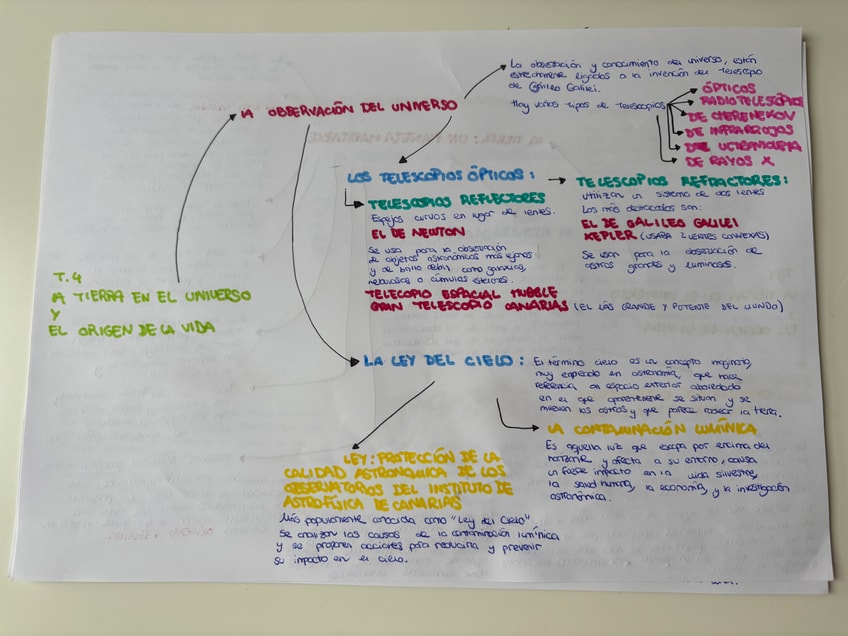 LA OBSERVACIÓN DEL UNIVERSO
La observación y conocimiento del universo, están
estrechamente ligados a la invención del telescopio
de Galileo Galilei.
Hay varios tipos de telescopios
ÓPTICOS
RADIOTELESCOPIOS
DE CHERENEKOV
DE INFRARROJOS
DE ULTRAVIOLETA
DE RAYOS X
LOS TELESCOPIOS ÓPTICOS:
TELESCOPIOS REFLECTORES
Espejos curvos en lugar de lentes.
EL DE NEWTON
Se usa para la observación
de objetos astronómicos más lejanos
y de brillo débil como galaxias,
nebulosas o cúmulos estelares.
TELECOPIO ESPACIAL HUBBLE
GRAN TELESCOPIO CANARIAS (EL MÁS GRANDE Y POTENTE DEL MUNDO)
TELESCOPIOS REFRACTORES:
Utilizan un sistema de dos lentes
Los más destacados son:
EL DE GALILEO GALILEI
KEPLER (USARA 2 LENTES CONVEXAS)
Se usan para la observación de
astros grandes y luminosos.
T.4
LA TIERRA EN EL UNIVERSO
Y
EL ORIGEN DE LA VIDA
LA LEY DEL CIELO:
El término cielo es un concepto imaginario,
muy empleado en astronomía, que hace
referencia al espacio exterior
en el que aparentemente se sitúan y se
mueven los astros y que parece rodear la tierra.
LA CONTAMINACIÓN LUMÍNICA
Es aquella luz que escapa por encima del
horizonte y afecta a su entorno, causa
un fuerte impacto en la vida silvestre,
la salud humana, la economía, y la investigación
astronómica.
LEY: PROTECCIÓN DE LA
CALIDAD ASTRONÓMICA DE LOS
OBSERVATORIOS DEL INSTITUTO DE
ASTROFÍSICA DE CANARIAS
Más popularmente conocida como "Ley del Cielo"
Se analizan las causas de la contaminación lumínica
y se proponen acciones para reducirla y prevenir
su impacto en el cielo.